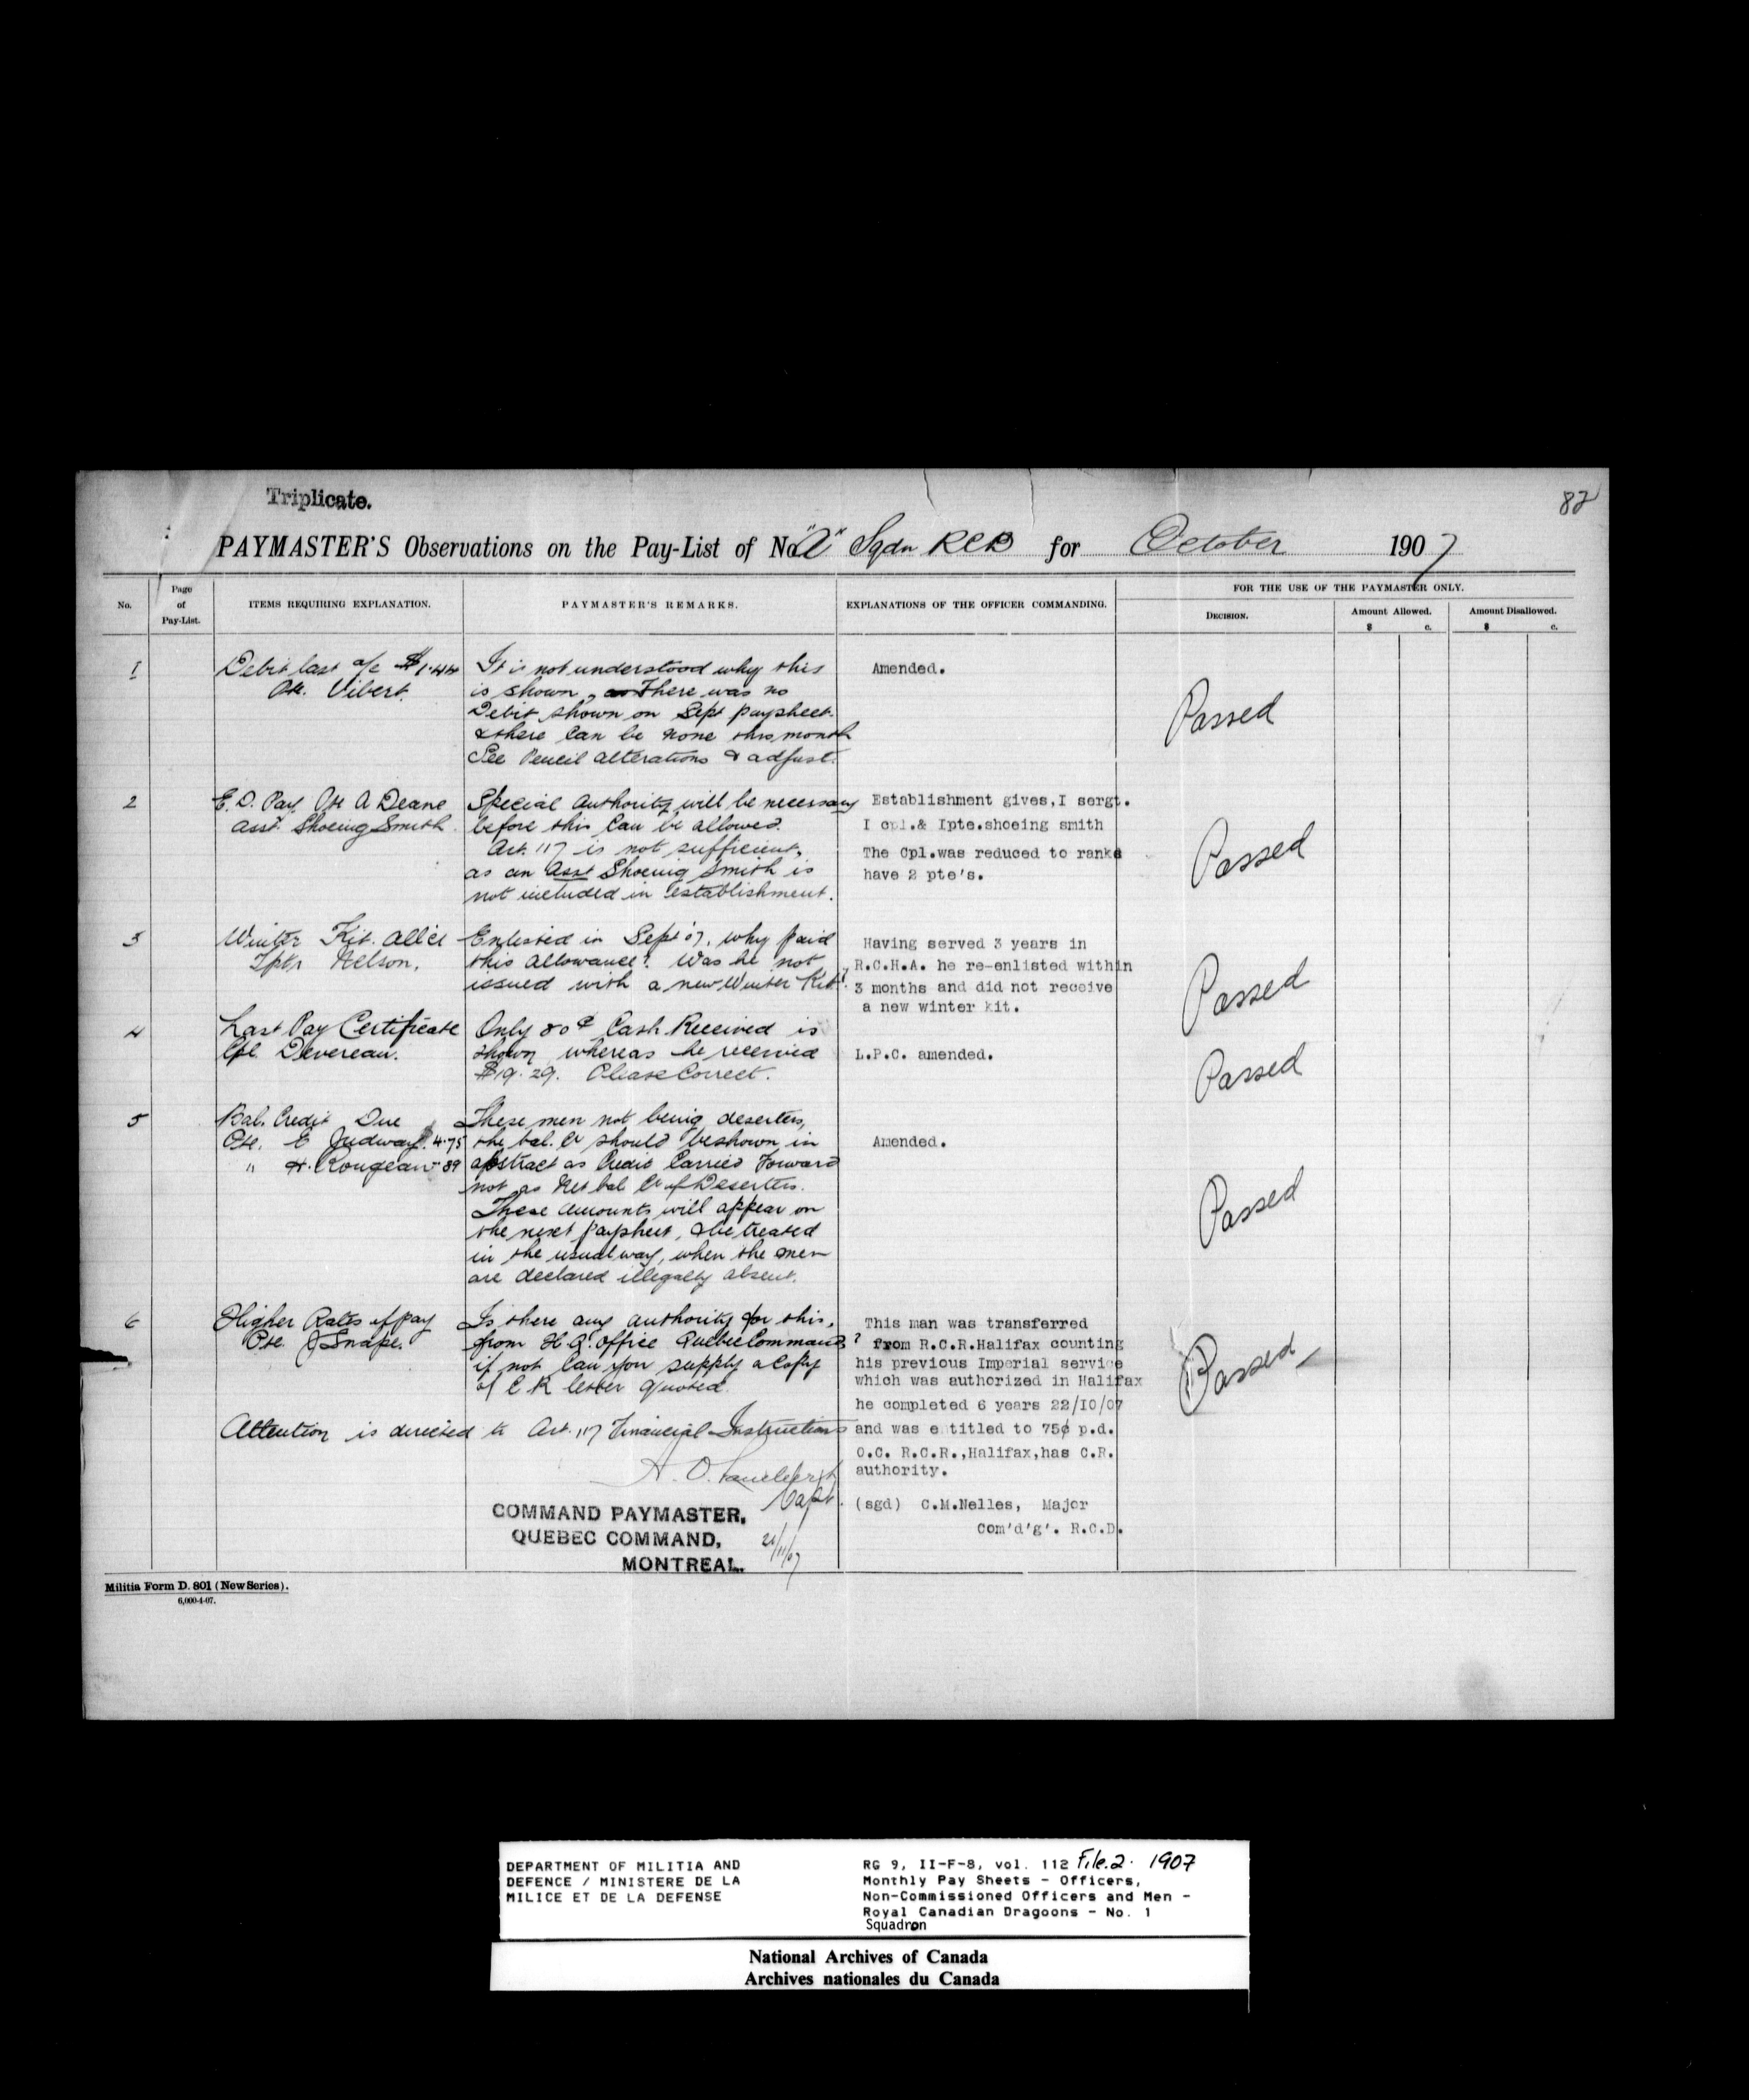 Triplicate.
82
PAYMASTER'S Observations on the Pay-List of No. "A" Sqdn RCD for October 1907
No.
Page of Pay-List.
ITEMS REQUIRING EXPLANATION.
PAYMASTER'S REMARKS.
EXPLANATIONS OF THE OFFICER COMMANDING.
FOR THE USE OF THE PAYMASTER ONLY.
DECISION.
Amount Allowed.
$ c.
Amount Disallowed.
$ c.
1
Debit last a/c $1.44
Pte. Vibert.
It is not understood why this
is shown, as There was no
Debit shown on Sept paysheet.
& there can be none this month
See Pencil alterations & adjust.
Amended.
Passed
2
E.D. Pay Pte A Deane
asst. Shoeing Smith.
Special Authority will be necessary
before this can be allowed.
Art. 117 is not sufficient,
as an Asst Shoeing Smith is
not included in establishment.
Establishment gives,I sergt.
I cpl.& Ipte.shoeing smith
The Cpl.was reduced to ranks
have 2 pte's.
Passed
3
Winter Kit. All'ce
Tptr Nelson.
Enlisted in Sept '07. why paid
this allowance? Was he not
issued with a new Winter Kit?
Having served 3 years in
R.C.H.A. he re-enlisted within
3 months and did not receive
a new winter kit.
Passed
4
Last Pay Certificate
Cpl. Devereau.
Only 80¢ Cash Received is
shown whereas he received
$19.29. Please Correct.
L.P.C. amended.
Passed
5
Bal. Credit Due
Pte. E Judway 4.75
" H. Rougeau - 89
These men not being deserters,
the bal. Cr should be shown in
abstract as Credit Carried Forward
not as Net bal Cr of Deserters.
These amounts will appear on
the next paysheet, & be treated
in the usual way, when the men
are declared illegally absent.
Amended.
Passed
6
Higher Rates of pay
Pte. J Snape.
Is there any authority for this,
from H.Q. Office Quebec Command?
if not Can you supply a Copy
of C R letter quoted.
This man was transferred
from R.C.R.Halifax counting
his previous Imperial service
which was authorized in Halifax
he completed 6 years 22/10/07
and was entitled to 75¢ p.d.
O.C. R.C.R.,Halifax,has C.R.
authority.
Passed
Attention is directed to Art. 117 Financial Instructions
Capt.
(sgd) C.M.Nelles, Major
Com'd'g'. R.C.D.
COMMAND PAYMASTER,
QUEBEC COMMAND,
MONTREAL.
21/11/07
Militia Form D. 801 (New Series).
6,000-4-07.
DEPARTMENT OF MILITIA AND
DEFENCE / MINISTERE DE LA
MILICE ET DE LA DEFENSE
RG 9, II-F-8, vol. 112 File.2. 1907
Monthly Pay Sheets - Officers,
Non-Commissioned Officers and Men -
Royal Canadian Dragoons - No. 1
Squadron
National Archives of Canada
Archives nationales du Canada